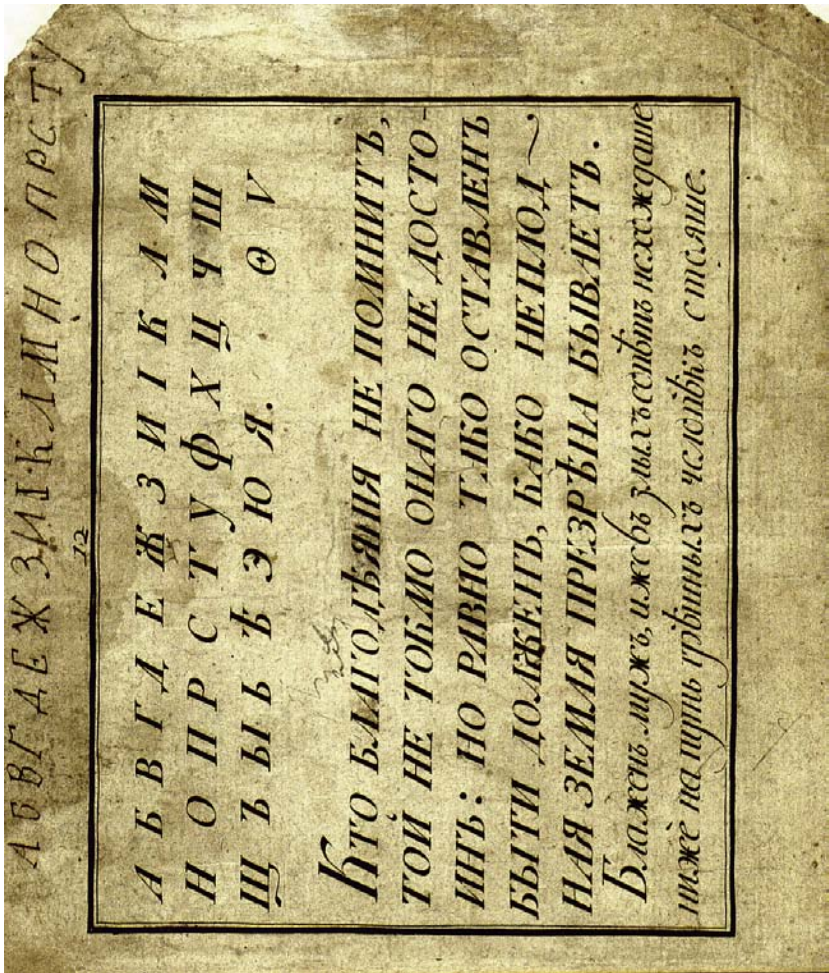 А Б В Г Д Е Ж З И І К Л М Н О П Р С Т У
12
А Б В Г Д Е Ж З И І К Л М
Н О П Р С Т У Ф Х Ц Ч Ш
Щ Ъ Ы Ь Ѣ Э Ю Я. Ѳ Ѵ
Кто БЛАГОДѢЯНІЯ НЕ ПОМНИТЪ,
ТОЙ НЕ ТОКМО ОНАГО НЕ ДОСТО-
ИНЪ: НО РАВНО ТАКО ОСТАВЛЕНЪ
БЫТИ ДОЛЖЕНЪ, КАКО НЕПЛОД~
НАЯ ЗЕМЛЯ ПРЕЗРѢНА БЫВАЕТЪ.
Блаженъ мужъ, иже въ злыхъ совѣтъ нехождаше
ниже на путь грѣшныхъ человѣкъ стояше.